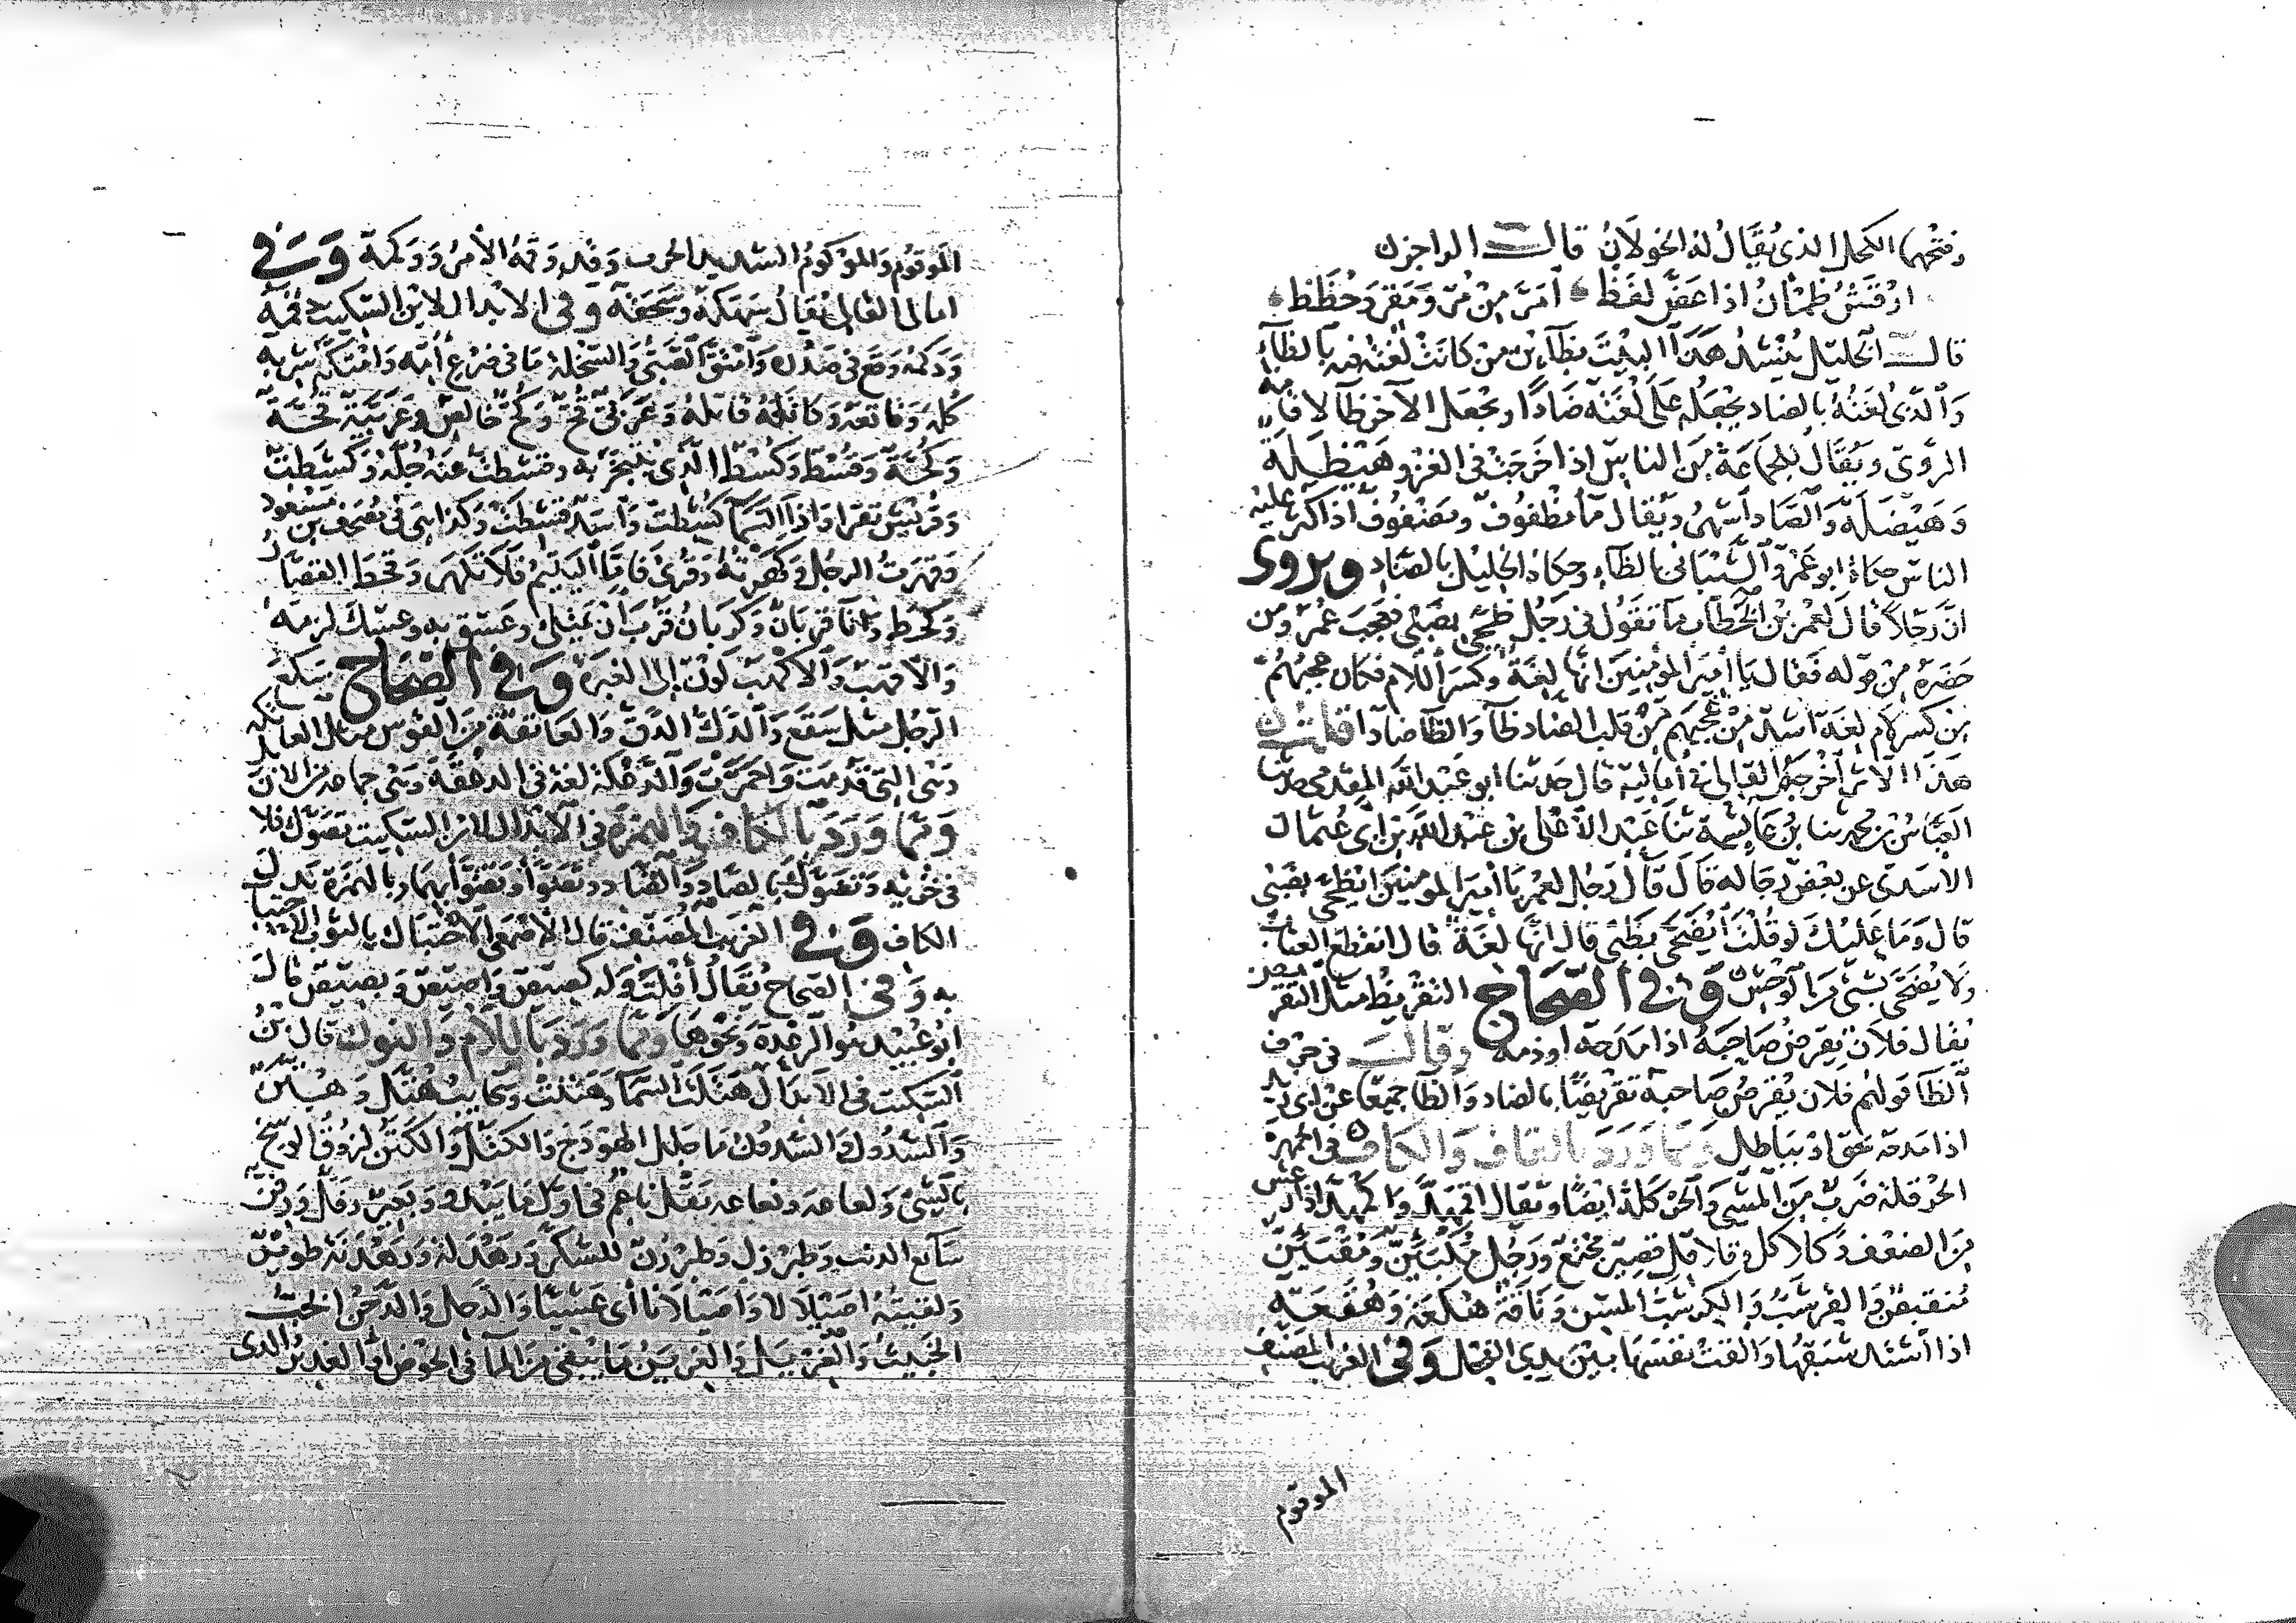 وفتحها الكحل الذي يقال له الخولان قالـــت الراجز
ارقش ظمآن اذا عصر لفظ امر من مر ومقر وحظظ
قالـــت الخليل ينشد هذا البيت بظآءين من كانت لغته فيه بالظآء
والذي لغته بالضاد يجعله على لغته ضادا ويجعل الآخر ظآ لاقامة
الروي ويقال للجماعة من الناس اذا خرجت في الغزو هيظلة
وهيضلة والضاد أشهر ويقال مآ مظفوف ومضفوف اذا كثر عليه
الناس حكاه ابو عمرو الشيباني بالظآء وحكاه الخليل بالضاد ويروى
ان رجلا قال لعمر بن الخطاب ما تقول في رجل ظحى بضبي فعجب عمر ومن
حضره من قوله فقال يا أمير المؤمنين انها لغة وكسر اللام فكان عجبهم
من كسره لام لغة اشد من عجبهم من قلب الضاد ظآ والظآ ضادا قلت
هذا الاثر اخرجه القالي في أماليه قال حدثنا ابو عبد الله المقدمي حدثنا
العباس بن محمد ثنا بن عايشة ثنا عبد الأعلى بن عبد الله بن ابي عثمان
الأسدي عن بعض رجاله قال قال رجل لعمر يا أمير المومنين ايظحى بضبي
قال وما عليك لو قلت أيضحى بظبي قال انها لغة قال انقطع العتاب
ولا يضحى بشي من الوحش وفي الصحاح التقريظ مثل التقريض
يقال فلان يقرض صاحبه اذا مدحه اوذمه وقالـــت في حرف
الظآ قولهم فلان يقرض صاحبه تقريضا بالضاد والظآ جميعا عن ابي زيد
اذا مدحه بحق او بباطل ومما ورد بالقاف والكاف في الجمهرة
الحوقلة ضرب من المشي والحوكلة ايضا ويقال اقمهد واكمهد اذا رعش
من الضعف وكلاكل وقلاقل قصير مجتمع ورجل مكبئن ومقبئن
منقبض والقرشب والكرشب المسن وناقة هكعة وهقعة
اذا اشتد شبقها والقت نفسها بين يدي الفحل وفي الغريب المصنف
الموقوم
الموقوم والموكوم الشديد الحزن وقد وقمه الأمر ووكمه وفي
امالي القالي يقال سهكه وسحقه وفي الابدال لابن السكيت دقمه
ودكمه دفع في صدره وامتق الصبي والسخلة ما في ضرع أمه وامتك شربه
كله وقاتعه وكاتعه قاتله وعربي قح وكح خالص وعربية قحة
وكحة وقسط وكسط الذي يتبخر به وقشطت عنه جلده وكشطت
وقريش تقرا واذا السمآ كشطت وأسد قشطت وكذا هي في مصحف بن مسعود
وقهرت الرجل وكهرته وقرئ فاما اليتيم فلا تكهر وقحط القصار
وكحط وإنآ قربان وكربان قرب ان يمتلئ وعسق به وعسك لزمه
والأقهب والأكهب لون إلى الغبرة وفي الصحاح سكع
الرجل مثل سقع والدك الدق والعاتقة من القوس مثل العاتكة
وهي التي قدمت واحمرت والدهكة لغة في الدهقة
ومما ورد بالكاف والهمزة في الابدال لابن السكيت تصوك فلان
في خريه وتضوك بالصاد والضاد وتصوا وتضوا بهما وبالهمزة بدل
الكاف وفي الغريب المصنف قال الأصمعي الاحتباك بالثوب الاحتبا
به وفي الصحاح يقال أفلت وله كصيص واصيص وبصيص قال
ابو عبيد هو الرعدة ونحوها ومما ورد باللام والنون قال بن
السكيت في الابدال هتلت السمآ وهتنت وسحايب هتل وهتن
والسدول والسدون ما جلل الهودج والكتل والكتن لزوق الوسخ
بالشي ولعاعة ونعاعة بقل ناعم في اول ما يبدو وبعير رفل ورفن
سابغ الذنب وطبرزل وطبرزن للسكر ورهدلة ورهدنة طويير
ولقيته اصيلالا واصيلانا أي عشيا والدحل والدحن الخب
الخبيث والغريل والغرين ما يبقى من المآ في الحوض أو الغدير الذي